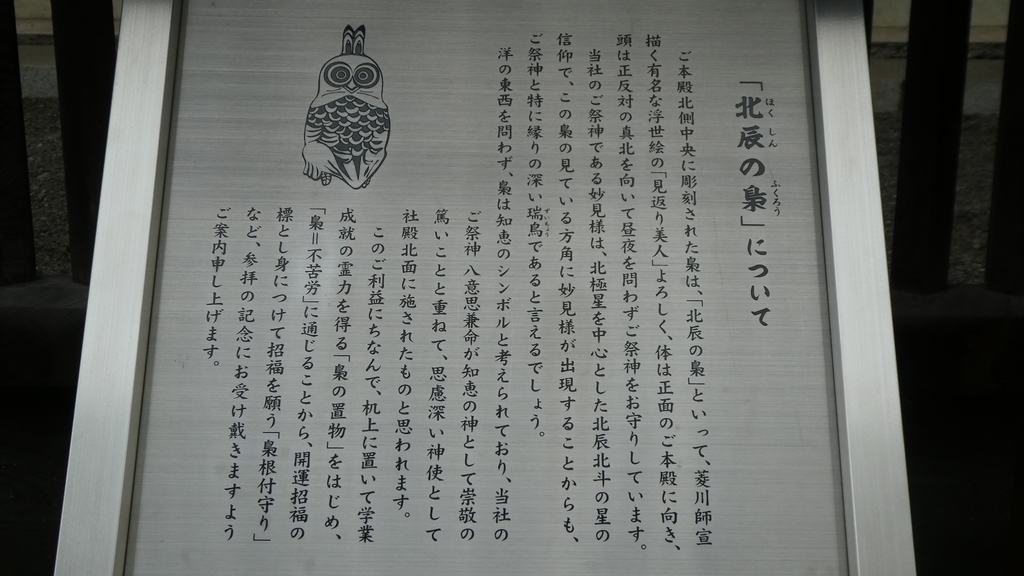 「北辰の梟」について
ほくしん ふくろう
ご本殿北側中央に彫刻された梟は、「北辰の梟」といって、菱川師宣
描く有名な浮世絵の「見返り美人」よろしく、体は正面のご本殿に向き、
頭は正反対の真北を向いて昼夜を問わずご祭神をお守りしています。
当社のご祭神である妙見様は、北極星を中心とした北辰北斗の星の
信仰で、この梟の見ている方角に妙見様が出現することからも、
ご祭神と特に縁りの深い瑞鳥であると言えるでしょう。
ずいちょう
洋の東西を問わず、梟は知恵のシンボルと考えられており、当社の
ご祭神 八意思兼命が知恵の神として崇敬の
篤いことと重ねて、思慮深い神使として
社殿北面に施されたものと思われます。
このご利益にちなんで、机上に置いて学業
成就の霊力を得る「梟の置物」をはじめ、
「梟＝不苦労」に通じることから、開運招福の
標とし身につけて招福を願う「梟根付守り」
など、参拝の記念にお受け戴きますよう
ご案内申し上げます。